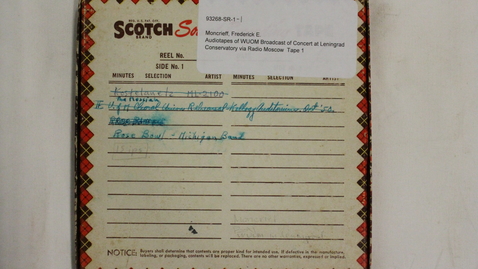 93268-SR-1-1
Moncrieff, Frederick E.
Audiotapes of WUOM Broadcast of Concert at Leningrad
Conservatory via Radio Moscow Tape 1
REG. U.S. PAT. OFF.
SCOTCH
BRAND
REEL No.
SIDE No. 1
MINUTES SELECTION ARTIST MINUTES SELECTION ARTIST
Kostelanetz ML-2100
The Messiah
II. U of M Choral Union Rehearsal Kellogg Auditorium Oct
Rose Bowl - Michigan Band
NOTICE: Buyers shall determine that contents are proper kind for intended use. If defective in the manufacture,
labeling, or packaging, contents will be replaced. There are no other warranties, expressed or implied.